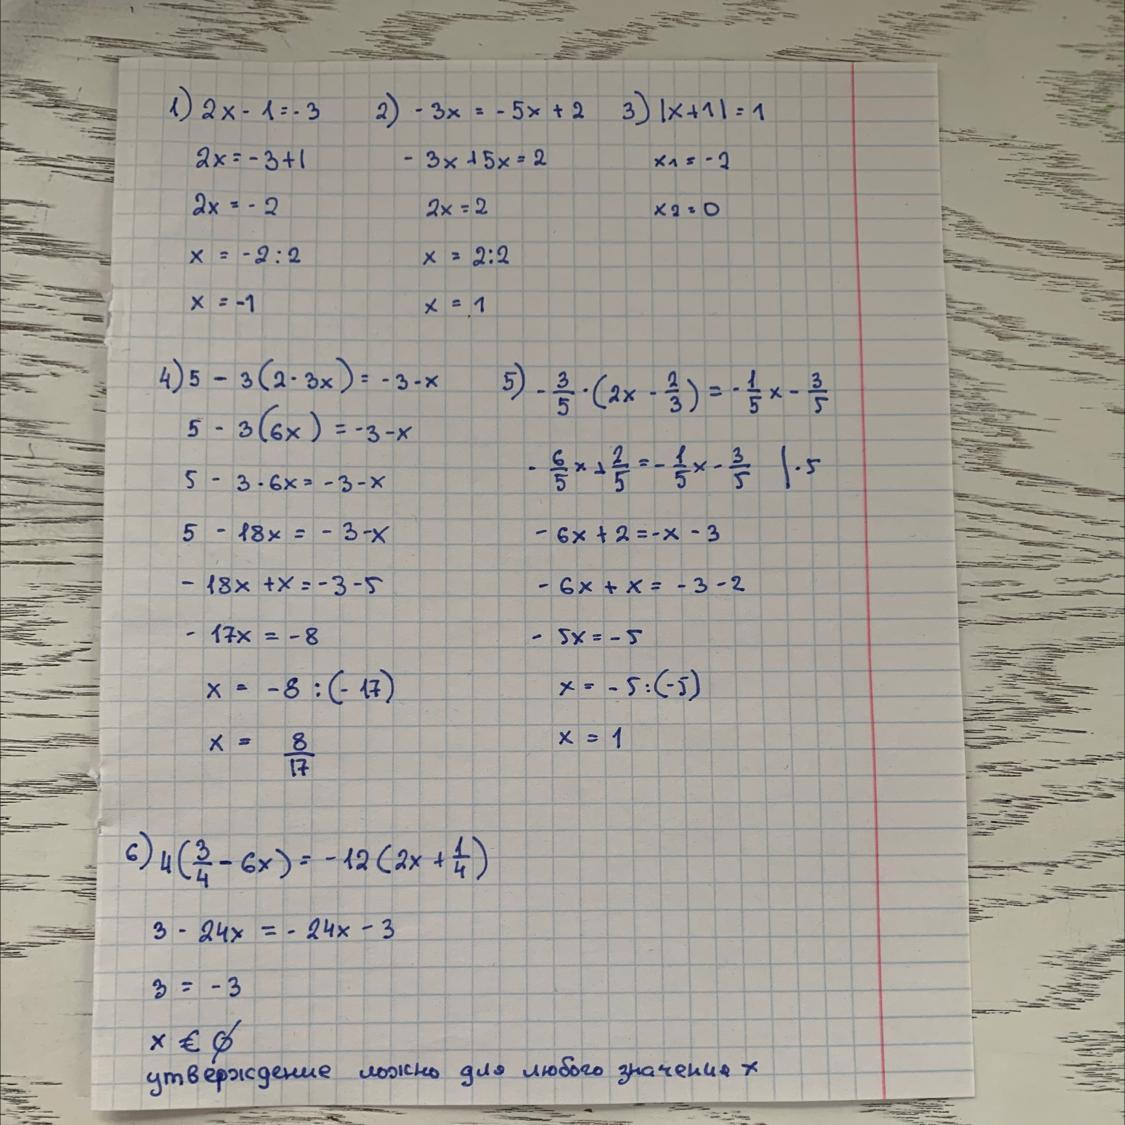 1) 2x - 1 = -3
2x = -3+1
2x = -2
x = -2:2
x = -1
2) -3x = -5x + 2
-3x+5x = 2
2x = 2
x = 2:2
x = 1
3) |x+1| = 1
x1 = -2
x2 = 0
4) 5 - 3(2·3x) = -3-x
5 - 3(6x) = -3-x
5 - 3·6x = -3-x
5 - 18x = -3-x
-18x+x = -3-5
-17x = -8
x = -8:(-17)
x = 8/17
5) -3/5·(2x - 2/3) = -1/5x - 3/5
-6/5x+2/5 = -1/5x - 3/5 |·5
-6x+2 = -x-3
-6x+x = -3-2
-5x = -5
x = -5:(-5)
x = 1
6) 4(3/4 - 6x) = -12(2x + 1/4)
3 - 24x = -24x - 3
3 = -3
x € ∅
утверждение ложно для любого значения x